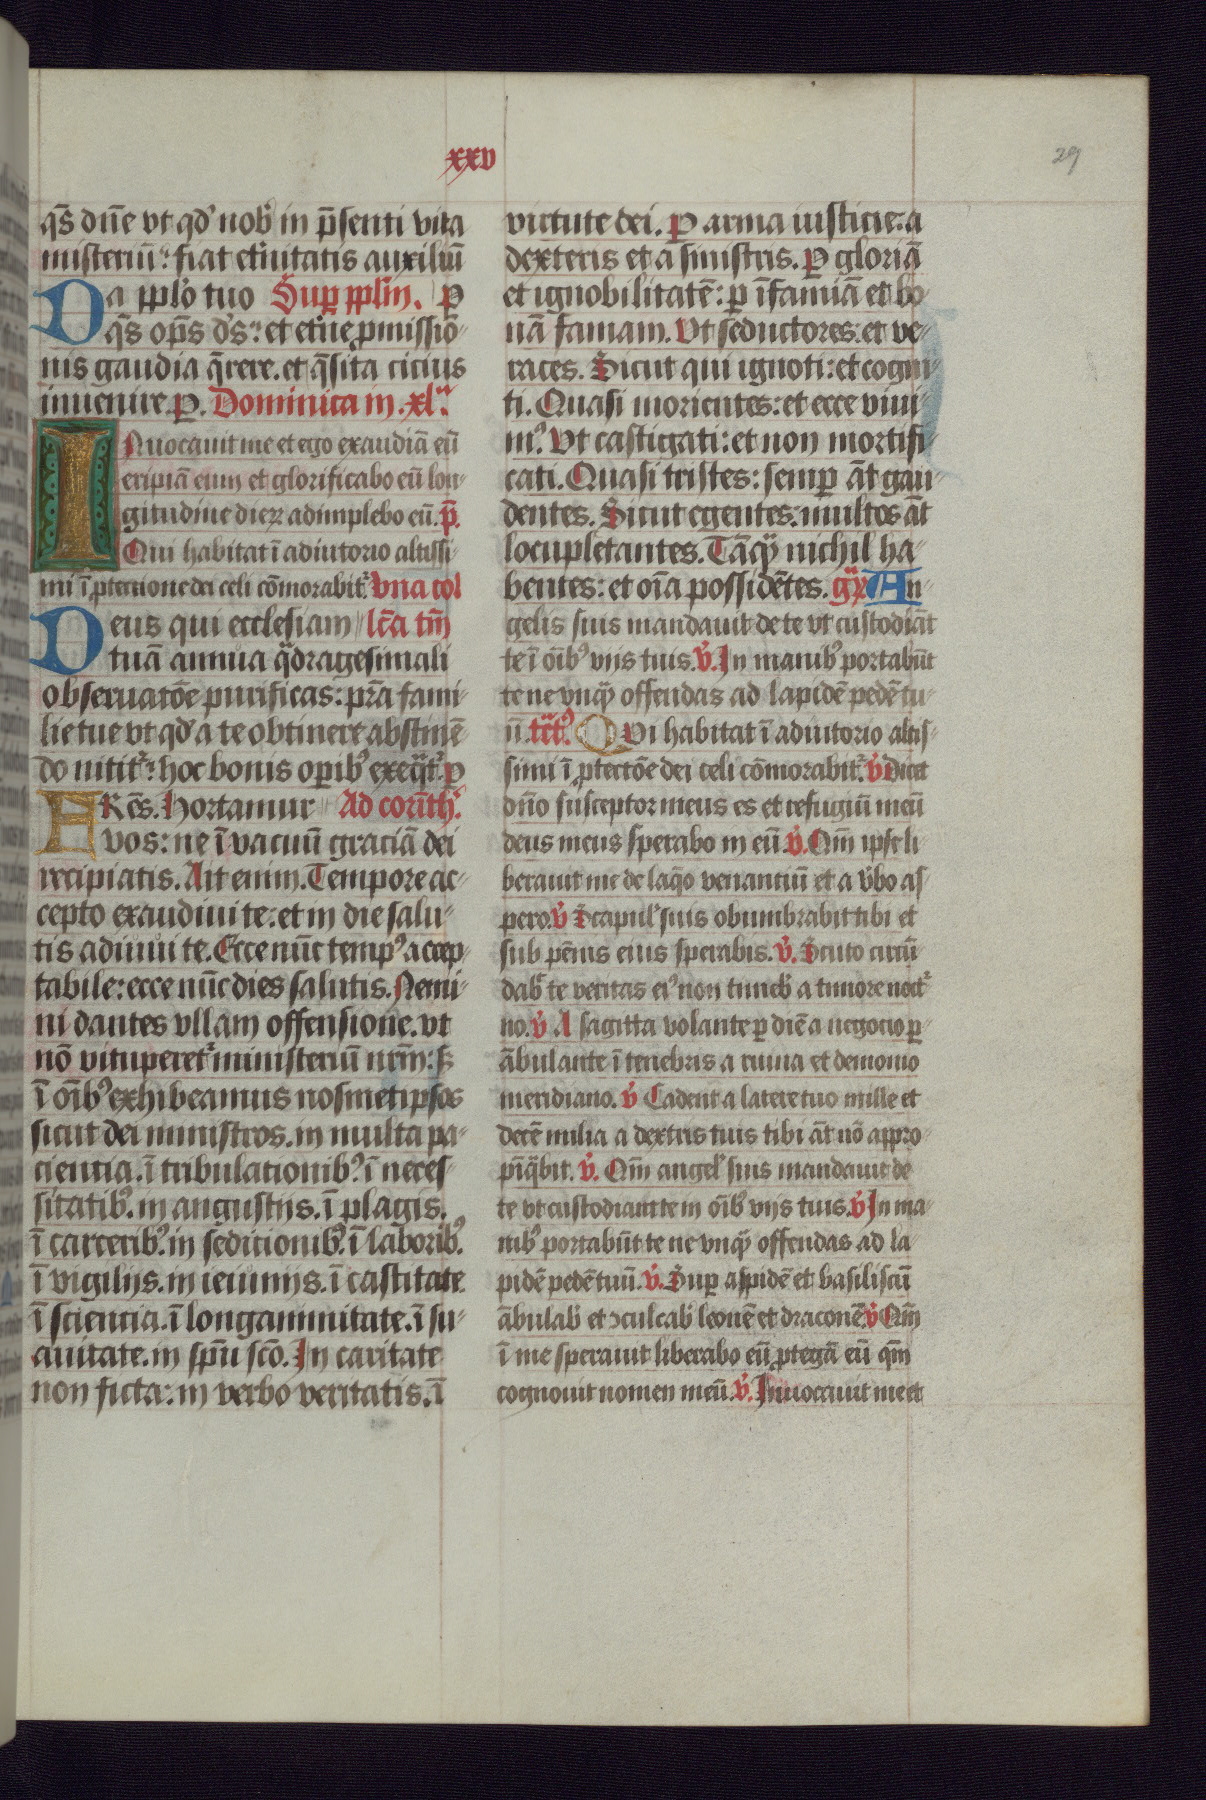 xxv
29
qs̄ dn̄e vt qd' nob' in p̄senti vita
misteriū: fiat et'nitatis auxiliū
Da pplo tuo Sup pplm̄. P
qs̄ op̄s d's: et et'ne ꝓmissiō-
nis gaudia q̄rere. et q̄sita cicius
inuenire. P. Dominica in. xl.ᵃ
INuocauit me et ego exaudiā eū
eripiā eum et glorificabo eū lon-
gitudine dieꝝ adimplebo eū. p̄.
Qui habitat ī adiutorio altissi-
mi ī ꝓtectione dei celi cōmorabit'. Vna col
Deus qui ecclesiam lc̄a tm̄
tuā annua q̄dragesimali
obseruatōe purificas: pr̄a fami-
lie tue vt qd' a te obtinere abstinē-
do nitit': hoc bonis oꝑib' exeq̄t'. P
FRes̄. Hortamur Ad corinth'.
vos: ne ī vacuū graciā dei
recipiatis. Ait enim. Tempore ac-
cepto exaudiui te: et in die salu-
tis adiuui te. Ecce nūc temp' accep-
tabile: ecce nūc dies salutis. Nemi-
ni dantes vllam offensione. vt
nō vituperet' ministeriū nrm̄: s;
ī oīb' exhibeamus nosmetipsos
sicut dei ministros. in multa pa-
ciencia. ī tribulationib'. ī neces-
sitatib'. in angustijs. ī plagis.
ī carcerib'. in sedicionib'. ī laborib'.
ī vigilijs. in ieiunijs. ī castitate.
ī sciencia. ī longanimitate. ī su-
auitate. in spū scō. In caritate
non ficta: in verbo veritatis. ī
virtute dei. P arma iusticie. a
dexteris et a sinistris. P gloriā
et ignobilitatē: ꝑ īfamiā et bo-
nā famam. Vt seductores: et ve-
races. Sicut qui ignoti: et cogni-
ti. Quasi morientes: et ecce viui-
m'. Vt castigati: et non mortifi-
cati. Quasi tristes: semꝑ āt gau-
dentes. Sicut egentes. multos āt
locupletantes. Tāqꝫ nichil ha-
bentes: et oīa possidētes. gr̄ An-
gelis suis mandauit de te vt custodiāt
te ī oīb' vijs tuis. V̄. In manib' portabūt
te ne vnqꝫ offendas ad lapidē pedē tu-
ū. tct'. QVi habitat ī adiutorio altis-
simi ī ꝓtectōe dei celi cōmorabit'. V̄ Dicet
dn̄o susceptor meus es et refugiū meū
deus meus sperabo in eū. V̄. Qm̄ ipse li-
berauit me de laq̄o venantiū et a v'bo as-
pero. V̄ Scapul' suis obumbrabit tibi et
sub pēnis eius sperabis. V̄. Scuto circū-
dab' te veritas ei' non timeb' a timore noct'-
no. V̄ A sagitta volante ꝑ diē a negocio ꝑ-
ābulante ī tenebris a ruina et demonio
meridiano. V̄ Cadent a latere tuo mille et
decē milia a dextris tuis tibi āt nō appro-
pīq̄bit. V̄. Qm̄ angel' suis mandauit de
te vt custodiant te in oīb' vijs tuis. V̄ In ma-
nib' portabūt te ne vnqꝫ offendas ad la-
pidē pedē tuū. V̄. Suꝑ aspidē et basiliscū
ābulab' et ꝯculcab' leonē et draconē V̄ Qm̄
ī me sperauit liberabo eū ꝓtegā eū qm̄
cognouit nomen meū. V̄. Inuocauit me et